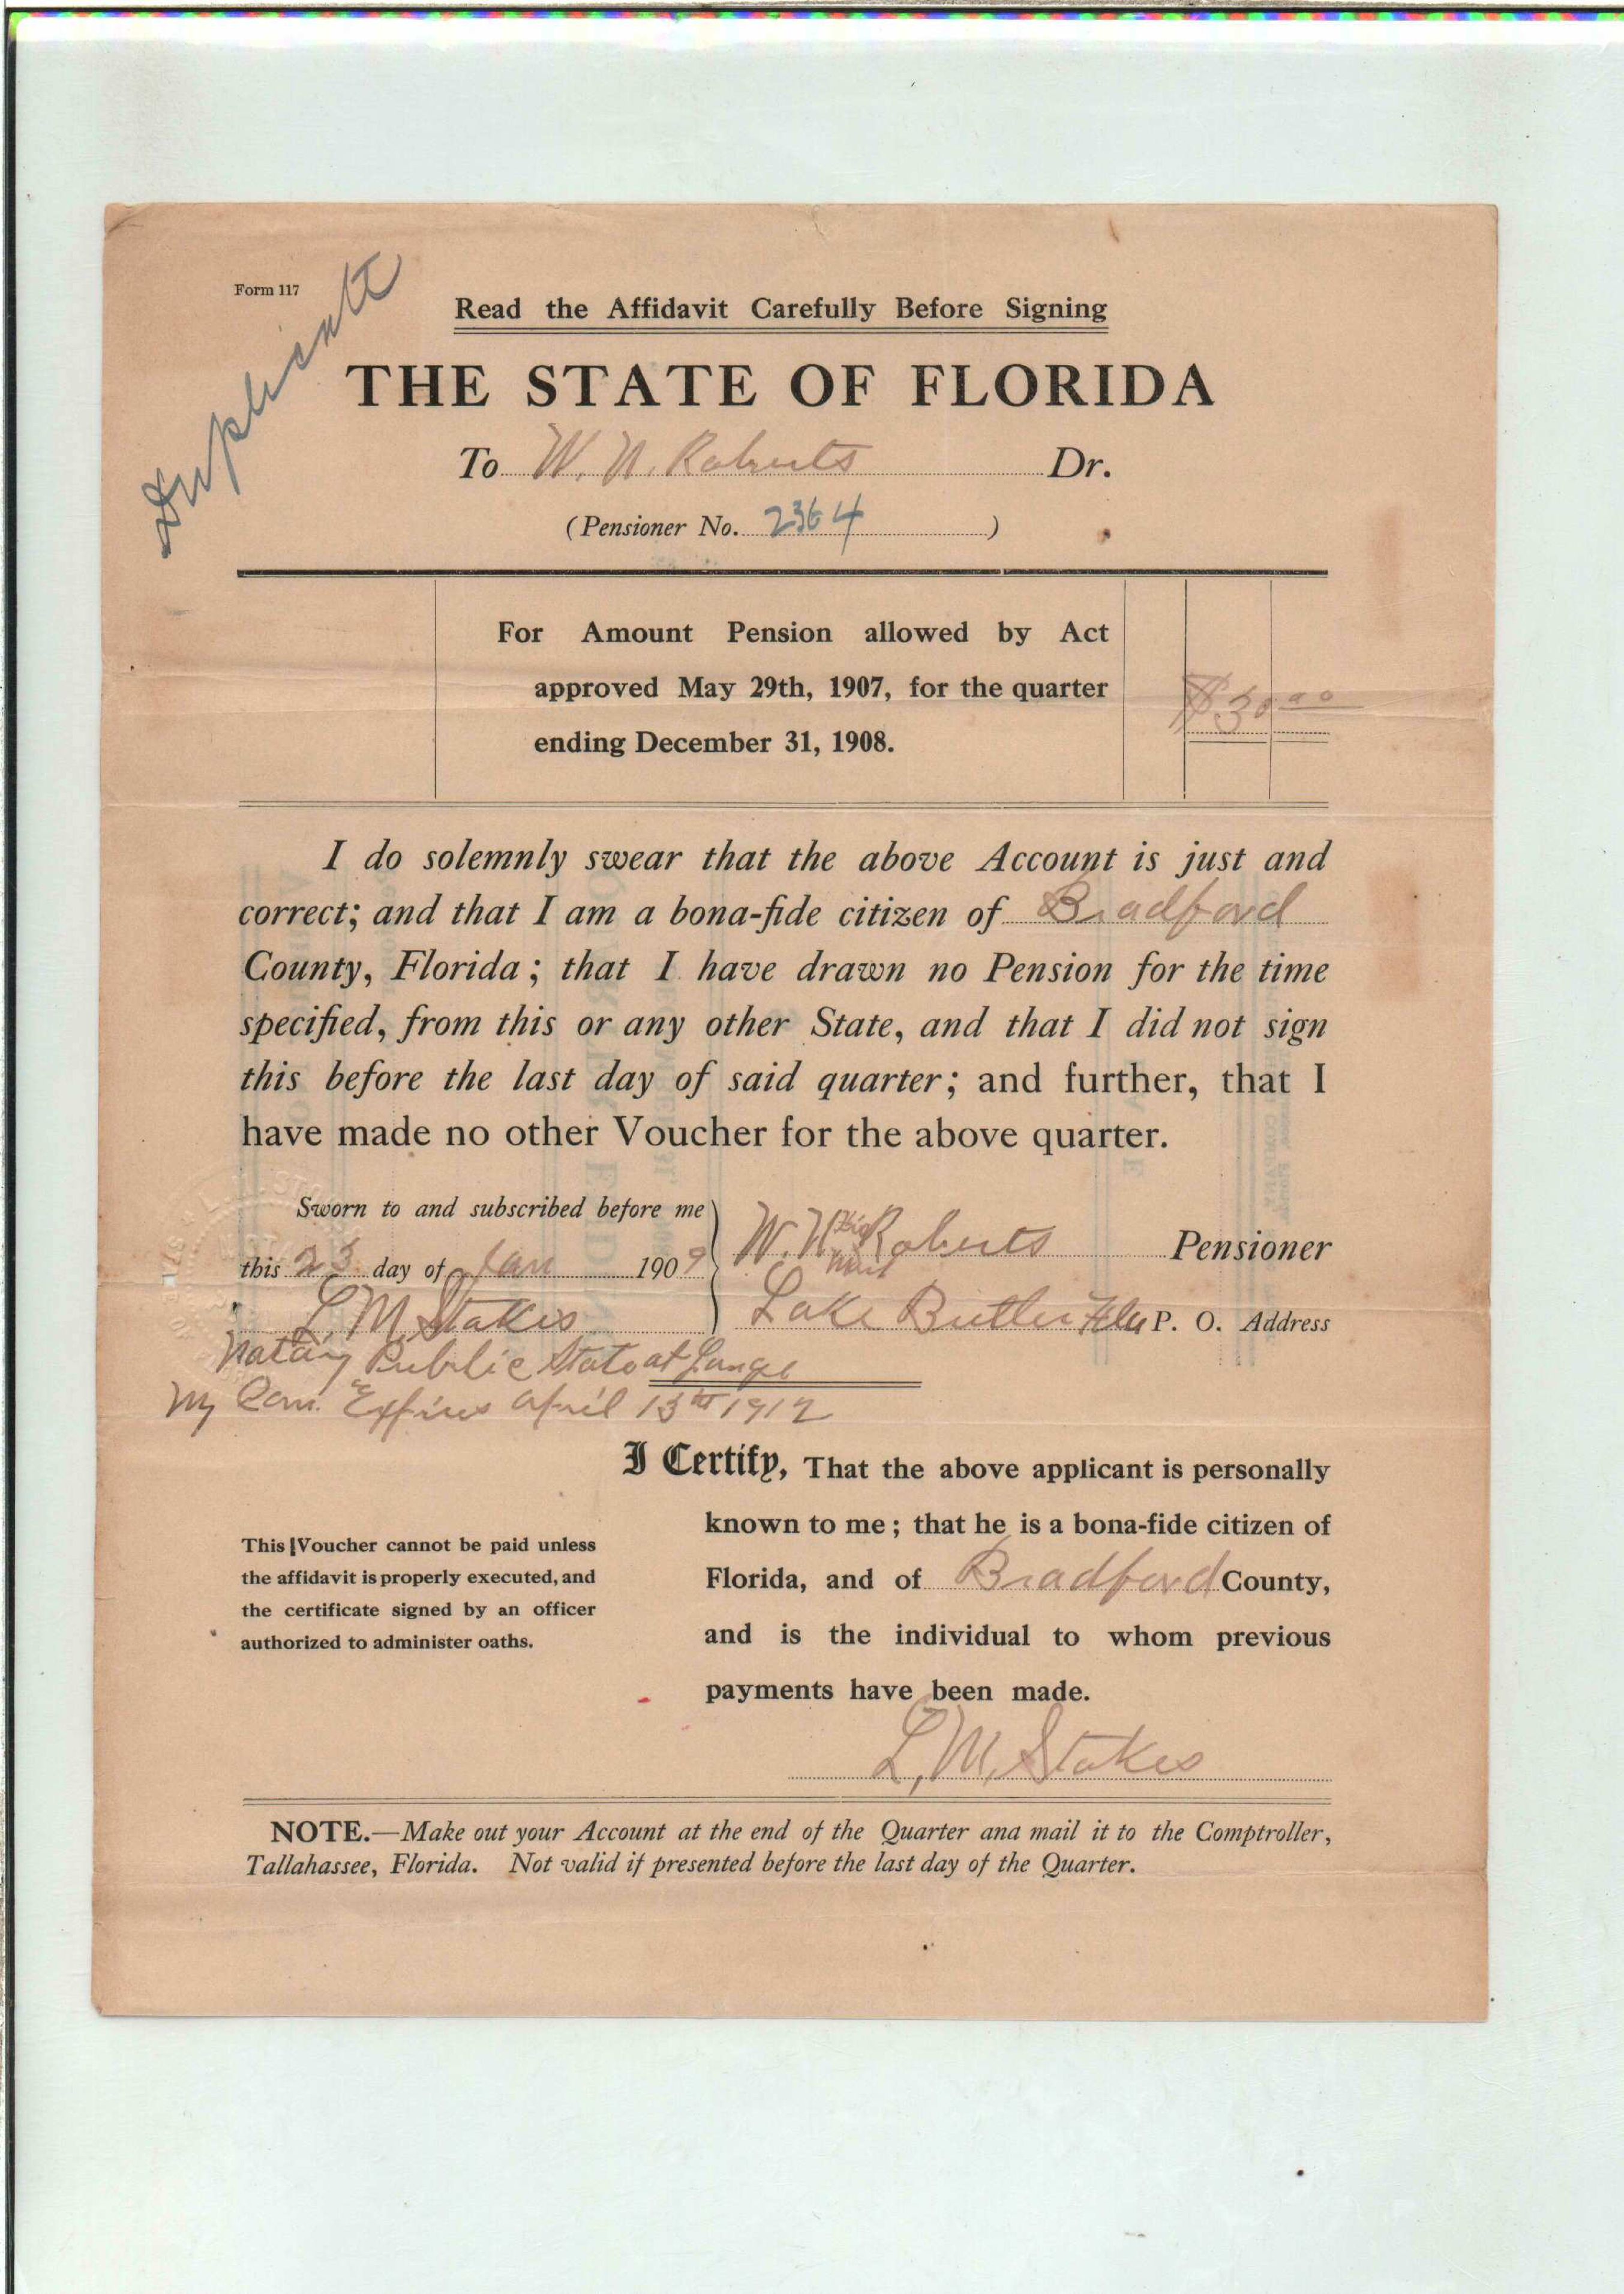 Form 117
Duplicate
Read the Affidavit Carefully Before Signing
THE STATE OF FLORIDA
To W. N. Roberts Dr.
(Pensioner No. 2364 )
For Amount Pension allowed by Act
approved May 29th, 1907, for the quarter
ending December 31, 1908.
$30 00
I do solemnly swear that the above Account is just and
correct; and that I am a bona-fide citizen of Bradford
County, Florida; that I have drawn no Pension for the time
specified, from this or any other State, and that I did not sign
this before the last day of said quarter; and further, that I
have made no other Voucher for the above quarter.
Sworn to and subscribed before me
this 23 day of Jan 1909
L. M. Stakes
Notary Public State at Large
My Com. Expires April 13th 1912
W. N. his mark Roberts Pensioner
Lake Butler Fla P. O. Address
I Certify, That the above applicant is personally
known to me; that he is a bona-fide citizen of
Florida, and of Bradford County,
and is the individual to whom previous
payments have been made.
L. M. Stakes
This Voucher cannot be paid unless
the affidavit is properly executed, and
the certificate signed by an officer
authorized to administer oaths.
NOTE.—Make out your Account at the end of the Quarter ana mail it to the Comptroller,
Tallahassee, Florida. Not valid if presented before the last day of the Quarter.